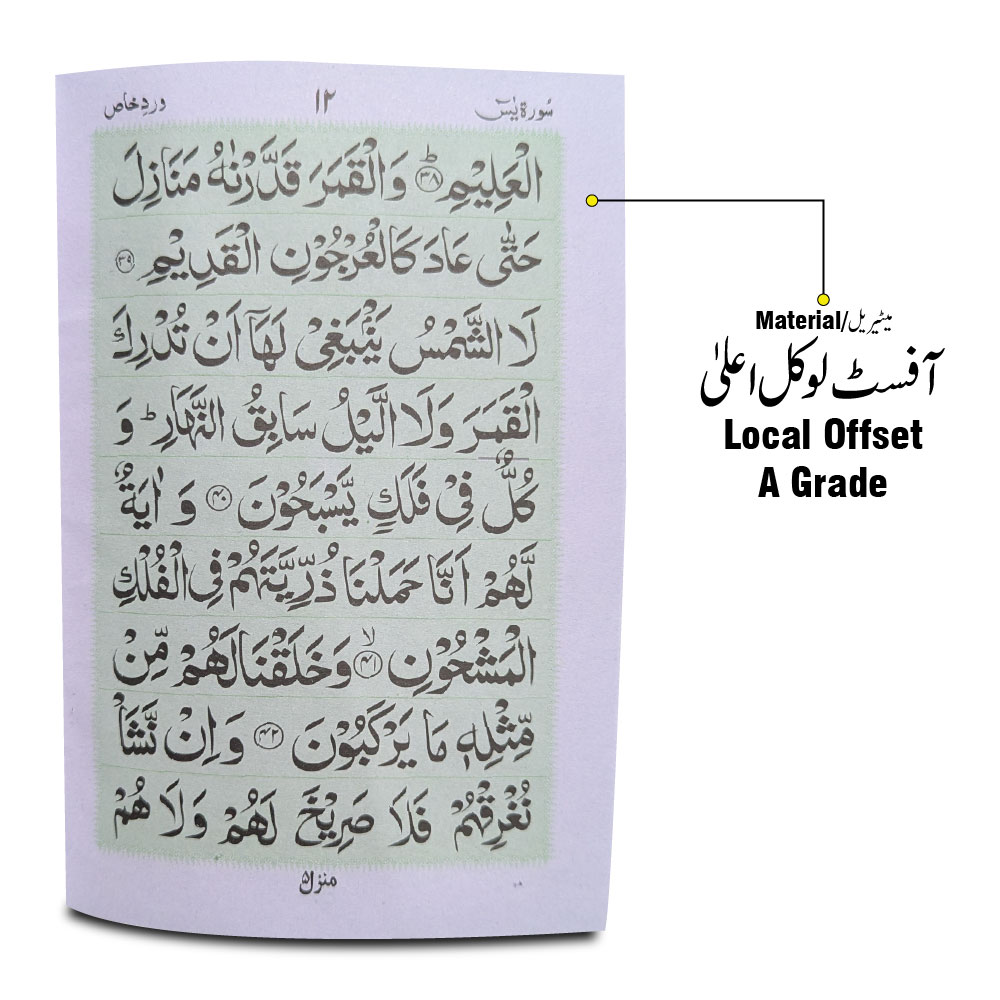 سورة يٰسٓ ۱۲ وردِ خاص
الْعَلِيْمِ ؕ﴿۳۸﴾ وَالْقَمَرَ قَدَّرْنٰهُ مَنَازِلَ
حَتّٰى عَادَ كَالْعُرْجُوْنِ الْقَدِيْمِ ﴿۳۹﴾
لَا الشَّمْسُ يَنْۢبَغِيْ لَهَاۤ اَنْ تُدْرِكَ
الْقَمَرَ وَلَا الَّيْلُ سَابِقُ النَّهَارِ ؕ وَ
كُلٌّ فِيْ فَلَكٍ يَّسْبَحُوْنَ ﴿۴۰﴾ وَ اٰيَةٌ
لَّهُمْ اَنَّا حَمَلْنَا ذُرِّيَّتَهُمْ فِي الْفُلْكِ
الْمَشْحُوْنِ ۙ﴿۴۱﴾ وَخَلَقْنَا لَهُمْ مِّنْ
مِّثْلِهٖ مَا يَرْكَبُوْنَ ﴿۴۲﴾ وَاِنْ نَّشَاْ
نُغْرِقْهُمْ فَلَا صَرِيْخَ لَهُمْ وَلَا هُمْ
منزل ۵
Material/میٹیریل
آفسٹ لوکل اعلیٰ
Local Offset
A Grade